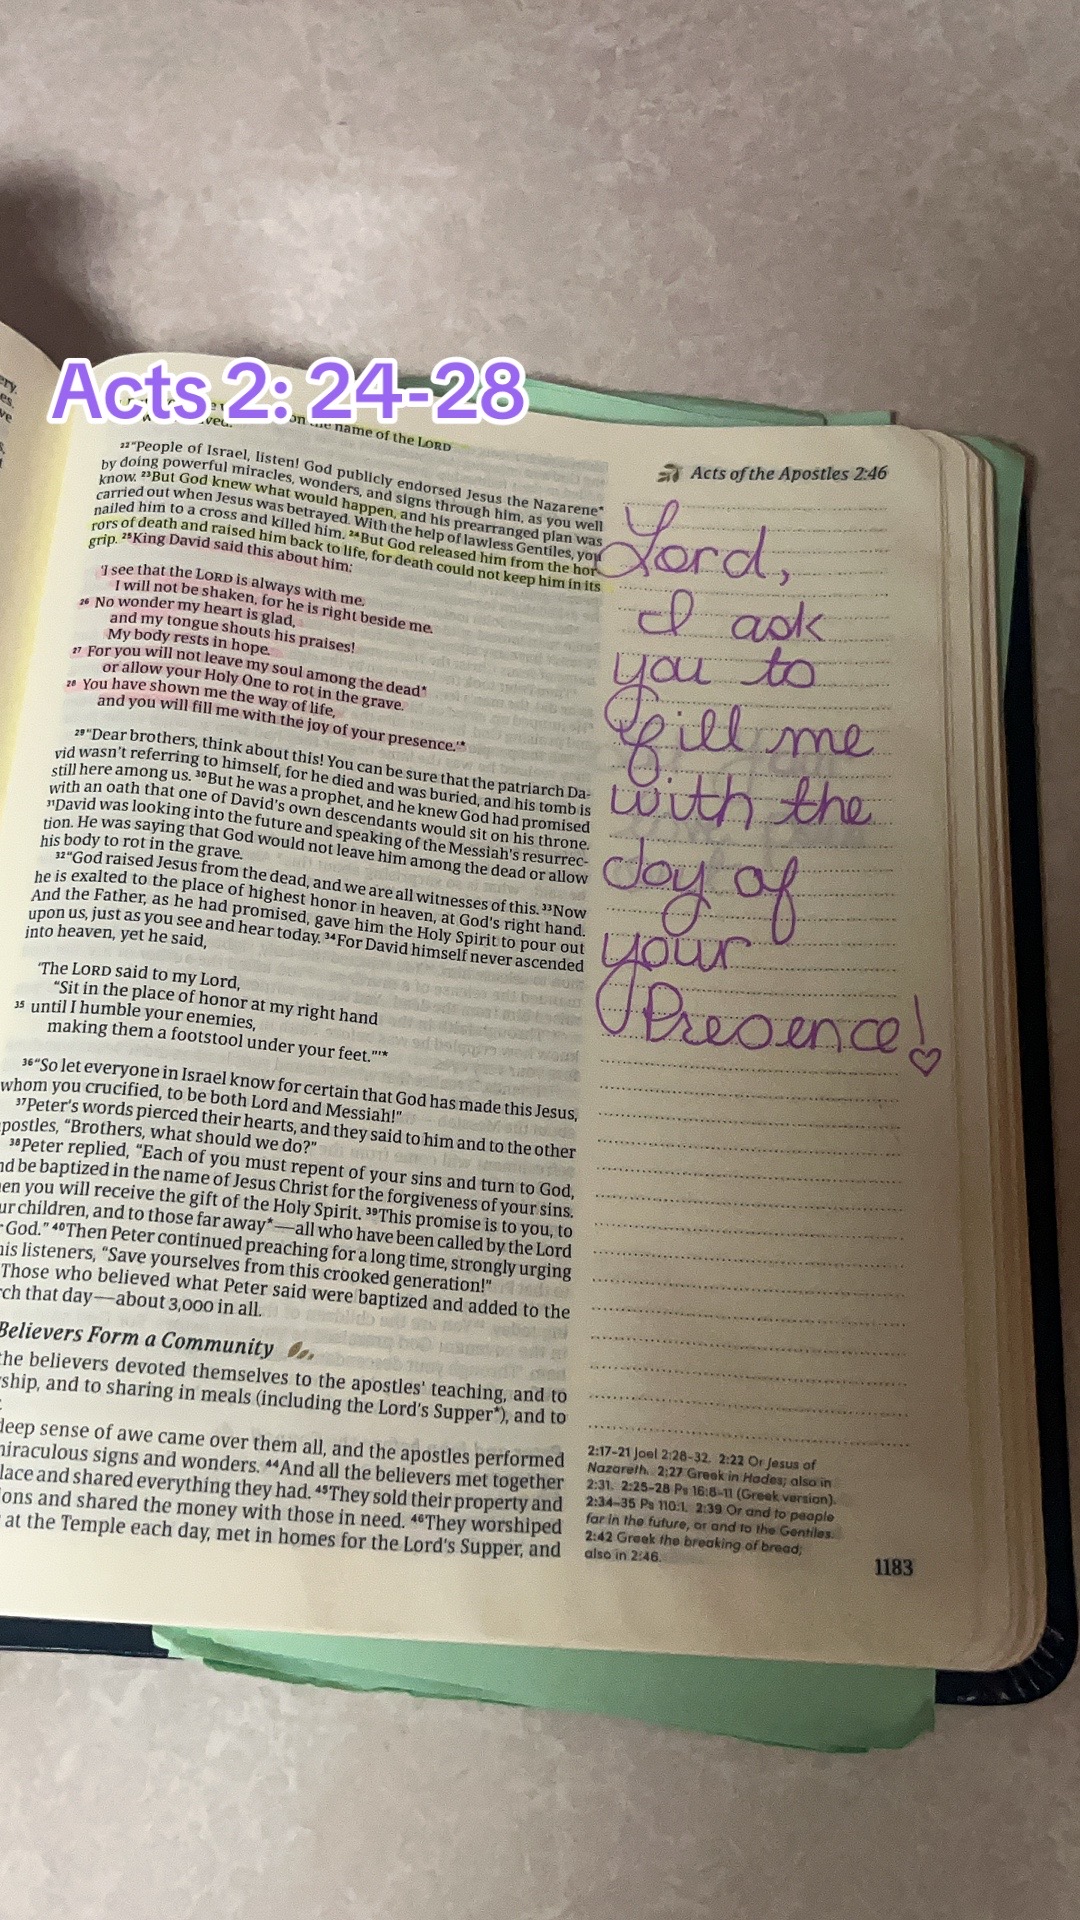 Acts 2: 24-28
on the name of the LORD
Acts of the Apostles 2:46
²²“People of Israel, listen! God publicly endorsed Jesus the Nazarene*
by doing powerful miracles, wonders, and signs through him, as you well
know. ²³But God knew what would happen, and his prearranged plan was
carried out when Jesus was betrayed. With the help of lawless Gentiles, you
nailed him to a cross and killed him. ²⁴But God released him from the hor-
rors of death and raised him back to life, for death could not keep him in its
grip. ²⁵King David said this about him:
‘I see that the LORD is always with me.
I will not be shaken, for he is right beside me.
²⁶ No wonder my heart is glad,
and my tongue shouts his praises!
My body rests in hope.
²⁷ For you will not leave my soul among the dead*
or allow your Holy One to rot in the grave.
²⁸ You have shown me the way of life,
and you will fill me with the joy of your presence.’*
²⁹“Dear brothers, think about this! You can be sure that the patriarch Da-
vid wasn’t referring to himself, for he died and was buried, and his tomb is
still here among us. ³⁰But he was a prophet, and he knew God had promised
with an oath that one of David’s own descendants would sit on his throne.
³¹David was looking into the future and speaking of the Messiah’s resurrec-
tion. He was saying that God would not leave him among the dead or allow
his body to rot in the grave.
³²“God raised Jesus from the dead, and we are all witnesses of this. ³³Now
he is exalted to the place of highest honor in heaven, at God’s right hand.
And the Father, as he had promised, gave him the Holy Spirit to pour out
upon us, just as you see and hear today. ³⁴For David himself never ascended
into heaven, yet he said,
‘The LORD said to my Lord,
“Sit in the place of honor at my right hand
³⁵ until I humble your enemies,
making them a footstool under your feet.”’*
³⁶“So let everyone in Israel know for certain that God has made this Jesus,
whom you crucified, to be both Lord and Messiah!”
³⁷Peter’s words pierced their hearts, and they said to him and to the other
postles, “Brothers, what should we do?”
³⁸Peter replied, “Each of you must repent of your sins and turn to God,
nd be baptized in the name of Jesus Christ for the forgiveness of your sins.
en you will receive the gift of the Holy Spirit. ³⁹This promise is to you, to
ur children, and to those far away*—all who have been called by the Lord
God.” ⁴⁰Then Peter continued preaching for a long time, strongly urging
is listeners, “Save yourselves from this crooked generation!”
Those who believed what Peter said were baptized and added to the
rch that day—about 3,000 in all.
Believers Form a Community
the believers devoted themselves to the apostles’ teaching, and to
ship, and to sharing in meals (including the Lord’s Supper*), and to
deep sense of awe came over them all, and the apostles performed
miraculous signs and wonders. ⁴⁴And all the believers met together
lace and shared everything they had. ⁴⁵They sold their property and
ions and shared the money with those in need. ⁴⁶They worshiped
at the Temple each day, met in homes for the Lord’s Supper, and
Lord,
I ask
you to
fill me
with the
Joy of
your
Presence!
2:17-21 Joel 2:28-32. 2:22 Or Jesus of
Nazareth. 2:27 Greek in Hades; also in
2:31. 2:25-28 Ps 16:8-11 (Greek version).
2:34-35 Ps 110:1. 2:39 Or and to people
far in the future, or and to the Gentiles.
2:42 Greek the breaking of bread;
also in 2:46.
1183